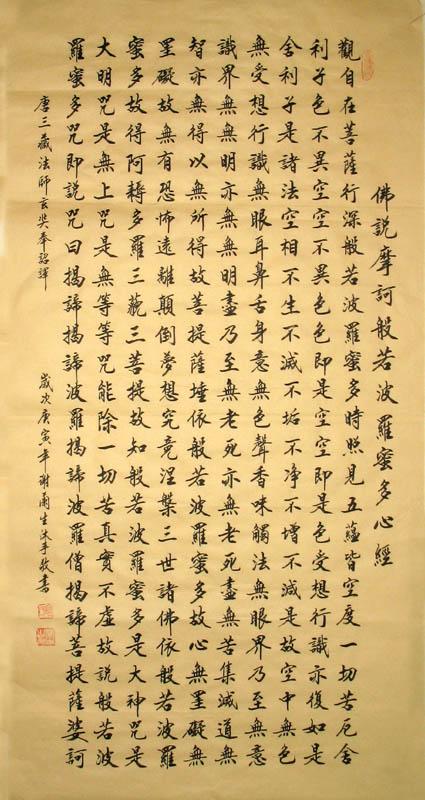 佛說摩訶般若波羅蜜多心經
觀自在菩薩行深般若波羅蜜多時照見五蘊皆空度一切苦厄舍
利子色不異空空不異色色即是空空即是色受想行識亦復如是
舍利子是諸法空相不生不滅不垢不净不增不減是故空中無色
無受想行識無眼耳鼻舌身意無色聲香味觸法無眼界乃至無意
識界無無明亦無無明盡乃至無老死亦無老死盡無苦集滅道無
智亦無得以無所得故菩提薩埵依般若波羅蜜多故心無罣礙無
罣礙故無有恐怖遠離顛倒夢想究竟涅槃三世諸佛依般若波羅
蜜多故得阿耨多羅三藐三菩提故知般若波羅蜜多是大神咒是
大明咒是無上咒是無等等咒能除一切苦真實不虛故說般若波
羅蜜多咒即說咒曰揭諦揭諦波羅揭諦波羅僧揭諦菩提薩婆訶
唐三藏法師玄奘奉詔譯
歲次庚寅年謝爾生沐手敬書